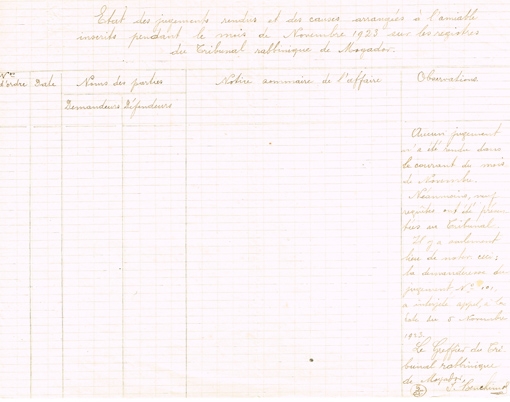 Etat des jugements rendus et des causes arrangées à l'amiable
inscrits pendant le mois de Novembre 1923 sur les registres
du Tribunal rabbinique de Mogador.
Nos d'ordre
Date
Noms des parties
Notice sommaire de l'affaire
Observations
Demandeurs
Défendeurs
Aucun jugement
n'a été rendu dans
le courant du mois
de Novembre.
Néanmoins, neuf
requêtes ont été présen
tées au Tribunal.
Il y a seulement
lieu de noter ceci :
la demanderesse du
jugement No
a interjeté appel, à la
date du 5 Novembre
1923.
Le Greffier du Tri-
bunal rabbinique
de Mogador